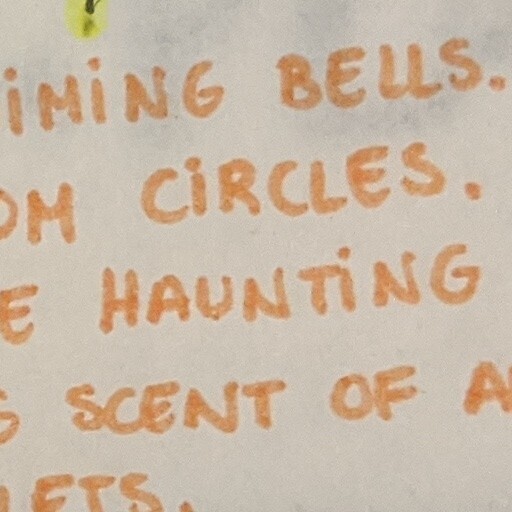 iMiNG BELLS.
OM CiRCLES.
E HAUNTiNG
S SCENT OF A
LETS.